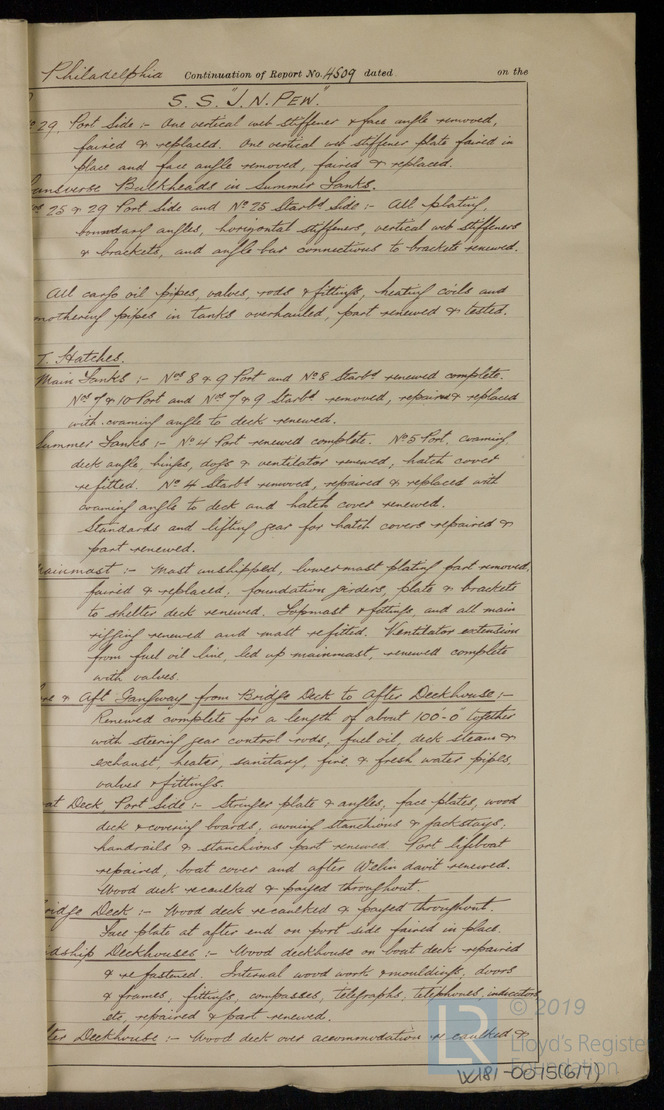 Philadelphia Continuation of Report No. 4509 dated on the
S.S. "J. N. PEW."
29, Port Side :- One vertical web stiffener & face angle removed,
faired & replaced. One vertical web stiffener plate faired in
place and face angle removed, faired & replaced.
ansverse Bulkheads in Summer Tanks.
25 & 29 Port Side and No 25 Starbd Side :- All plating,
boundary angles, horizontal stiffeners, vertical web stiffeners
& brackets, and angle bar connections to brackets renewed.
All cargo oil pipes, valves, rods & fittings, heating coils and
mothering pipes in tanks overhauled, part renewed & tested.
T. Hatches.
Main Tanks :- Nos 8 & 9 Port and No 8 Starbd renewed complete.
Nos 7 & 10 Port and Nos 7 & 9 Starbd removed, repaired & replaced
with coaming angle to deck renewed.
Summer Tanks :- No 4 Port renewed complete. No 5 Port, coaming
deck angle, hinges, dogs & ventilator renewed, hatch cover
refitted. No 4 Starbd removed, repaired & replaced with
coaming angle to deck and hatch cover renewed.
Standards and lifting gear for hatch covers repaired &
part renewed.
ainmast :- Mast unshipped, lowermast plating part removed,
faired & replaced, foundation girders, plate & brackets
to shelter deck renewed. Topmast & fittings and all main
rigging renewed and mast refitted. Ventilator extension
from fuel oil line, led up mainmast, renewed complete
with valves.
re & Aft Gangway from Bridge Deck to After Deckhouse :-
Renewed complete for a length of about 100'-0" together
with steering gear control rods, fuel oil, deck steam &
exhaust, heater, sanitary, fire, & fresh water pipes,
valves & fittings.
at Deck, Port Side :- Stringer plate & angles, face plates, wood
deck & covering boards, awning stanchions & jackstays,
handrails & stanchions part renewed. Port lifeboat
repaired, boat cover and after Welin davit renewed.
Wood deck recaulked & payed throughout.
ridge Deck :- Wood deck recaulked & payed throughout.
Face plate at after end on port side faired in place.
idship Deckhouses :- Wood deckhouse on boat deck repaired
& refastened. Internal wood work & mouldings, doors
& frames, fittings, compasses, telegraphs, telephones, indicators
etc, repaired & part renewed.
ter Deckhouse :- Wood deck over accommodation recaulked &
© 2019
LR
Lloyd's Register
Foundation
W181-0075(6/7)